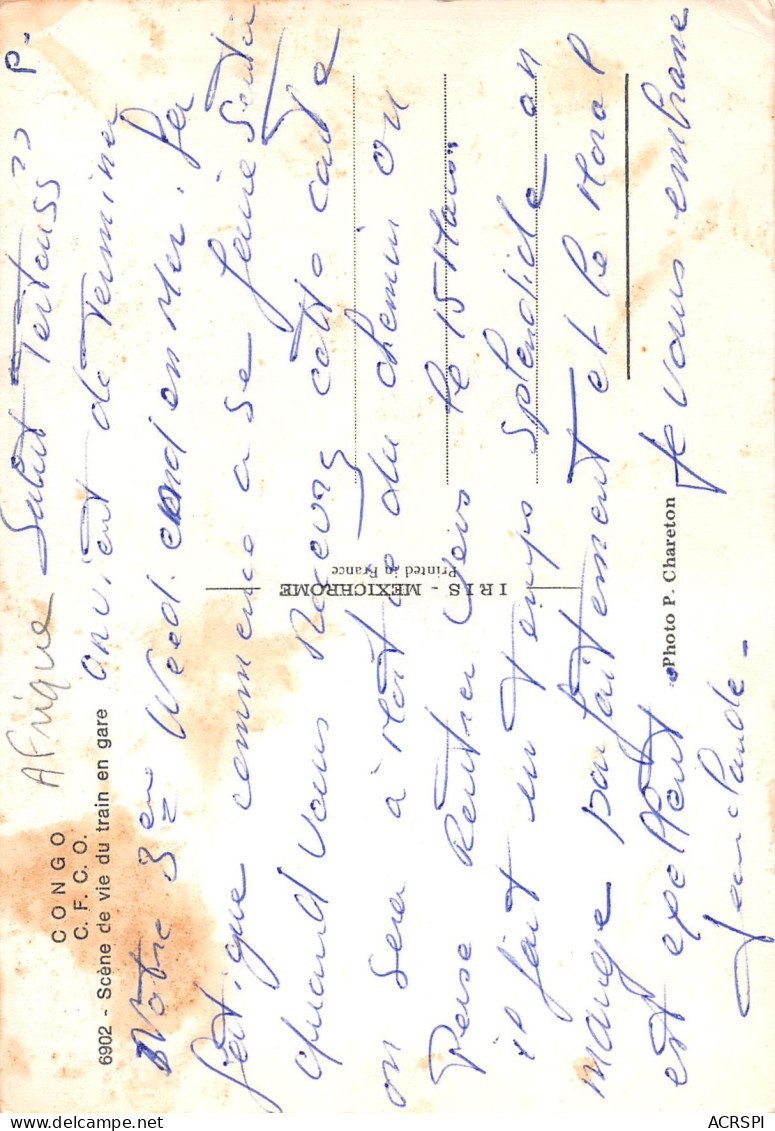 CONGO
C. F. C. O.
6902 - Scène de vie du train en gare
Afrique
Salut Tertouss" P-
on vient de Terminer
Notre 3 em Weed. end en Mer. la
fatique commence a se faire sentir
quand vous Recevrez cette carte
on sera à Moitié du chemin on
Pense Rentrer vers le 15 Mars
il fait un temps splendide on
mange parfaitement et le Moral
est exellent Je vous embrasse
Jean Claude-
IRIS - MEXICHROME
Printed in France
Photo P. Chareton
ACRSPI